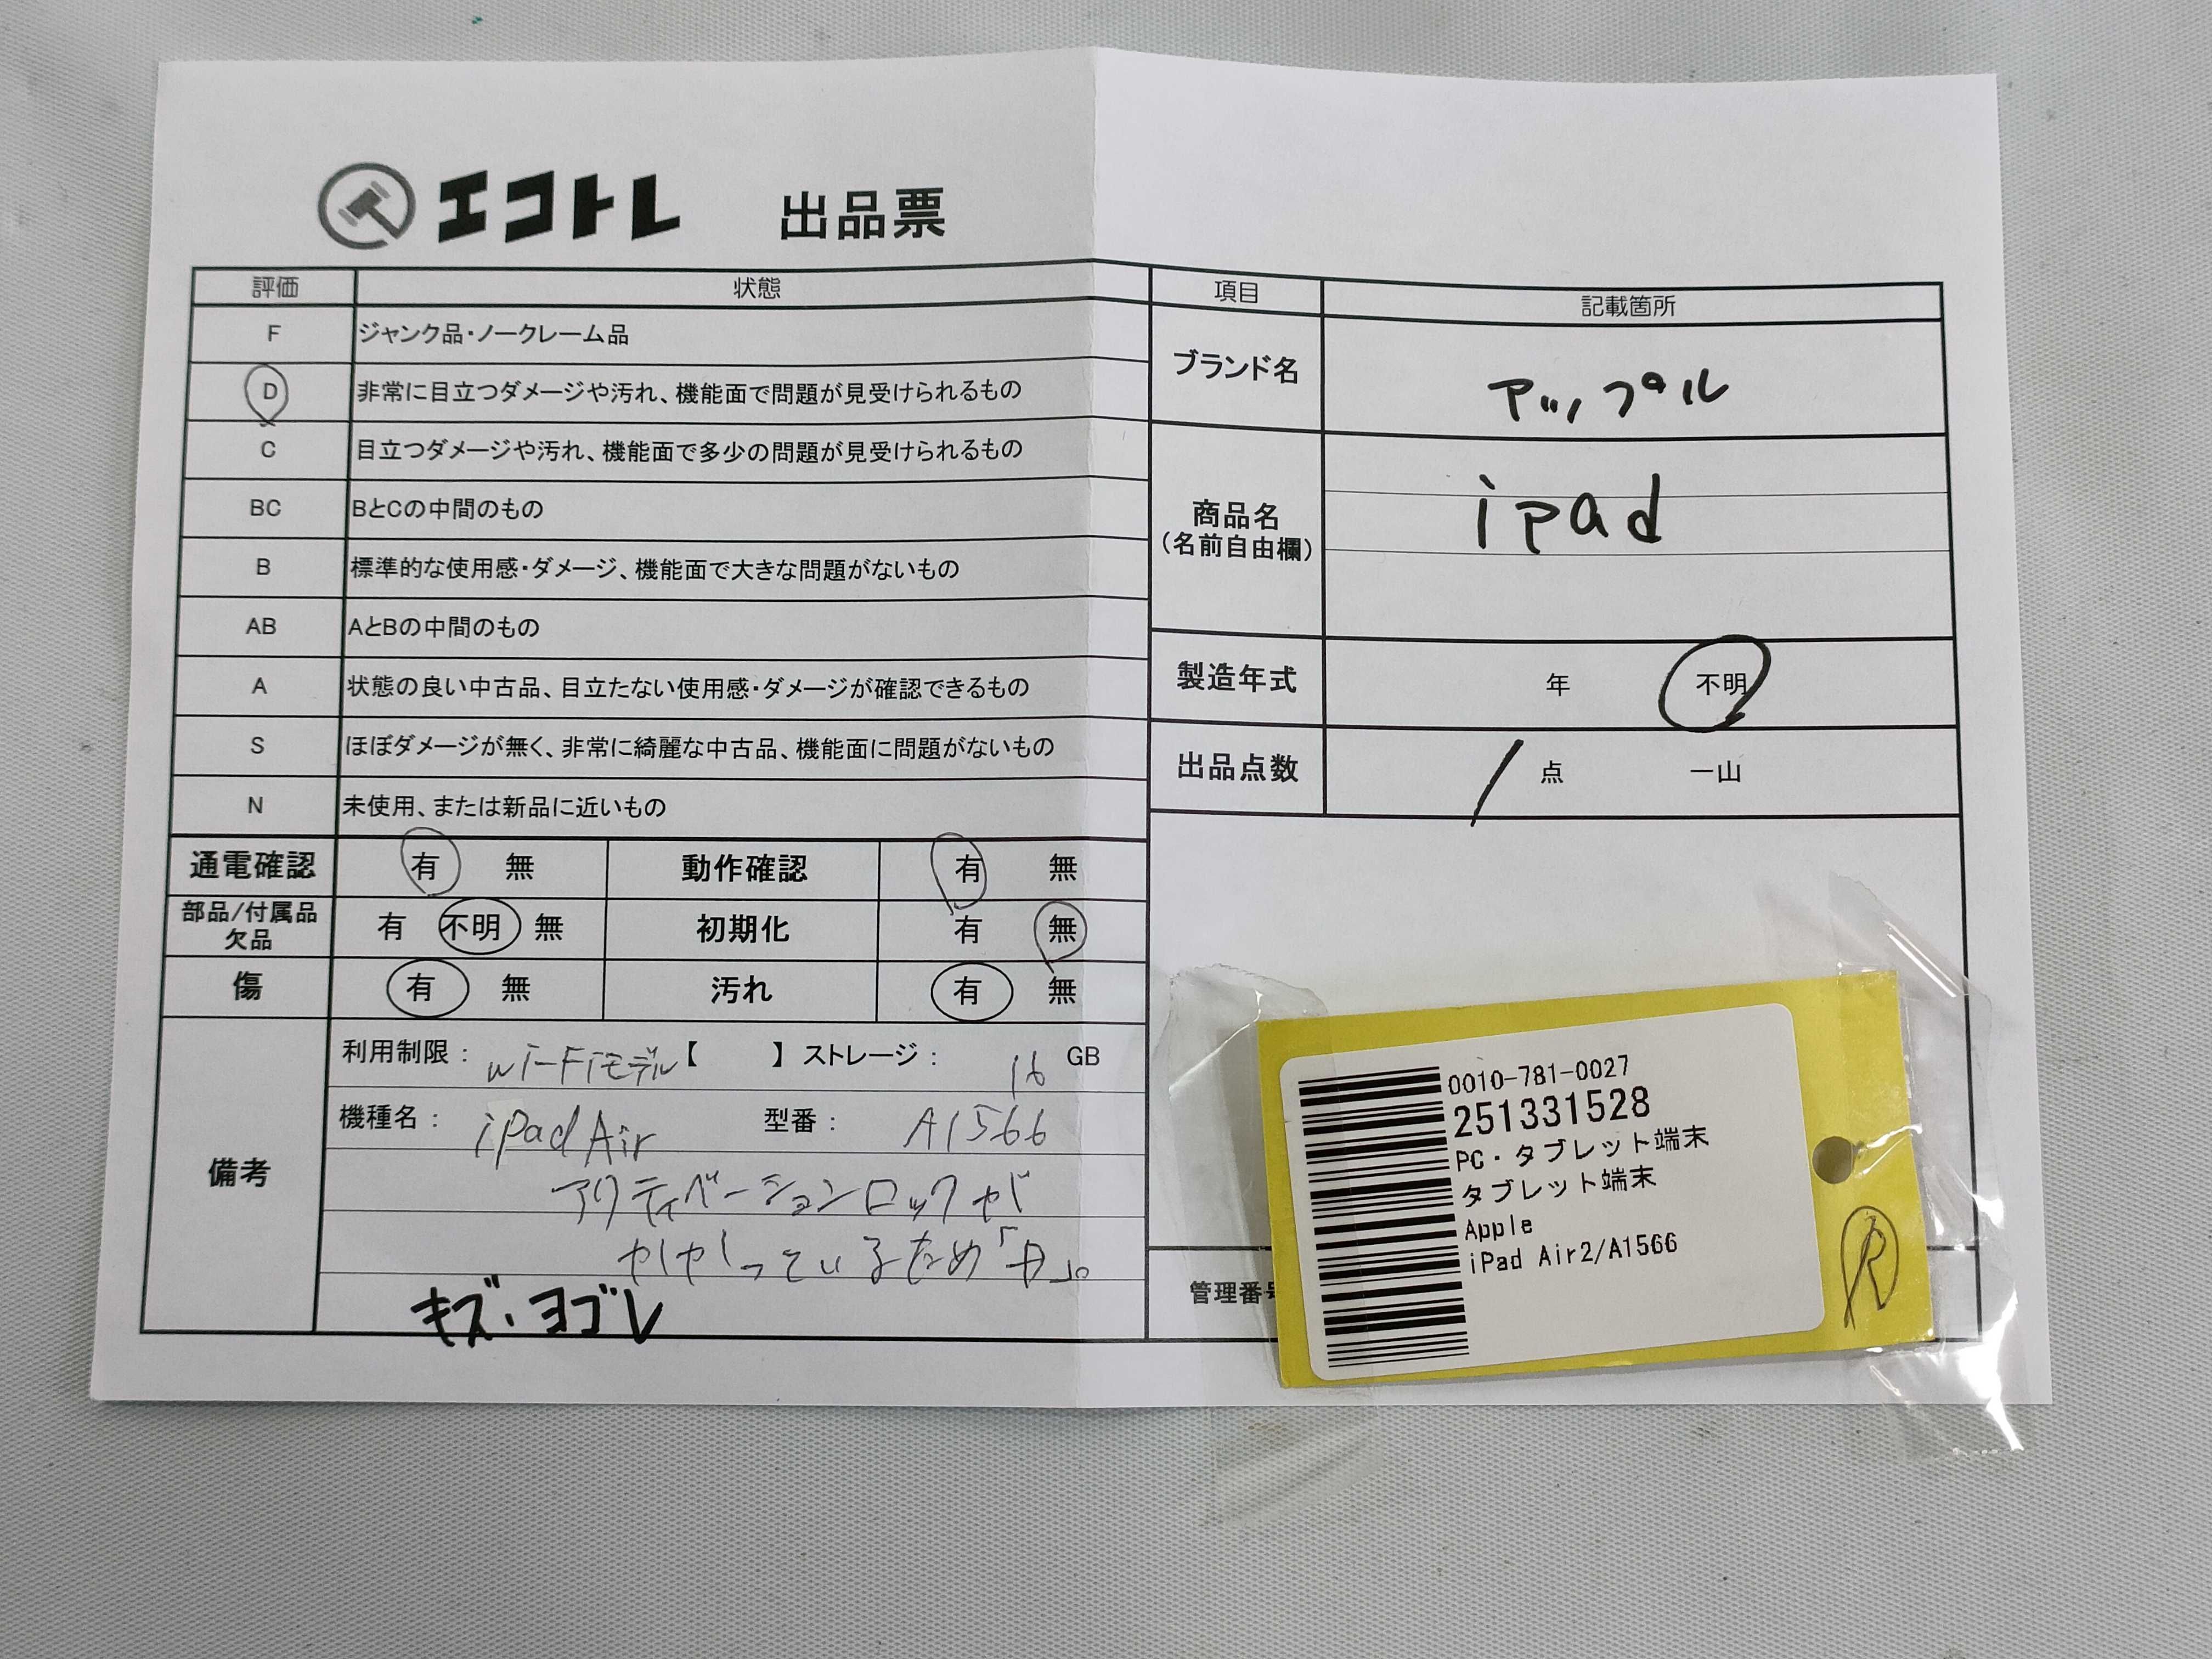 エコトレ 出品票
評価 状態
F ジャンク品・ノークレーム品
D 非常に目立つダメージや汚れ、機能面で問題が見受けられるもの
C 目立つダメージや汚れ、機能面で多少の問題が見受けられるもの
BC BとCの中間のもの
B 標準的な使用感・ダメージ、機能面で大きな問題がないもの
AB AとBの中間のもの
A 状態の良い中古品、目立たない使用感・ダメージが確認できるもの
S ほぼダメージが無く、非常に綺麗な中古品、機能面に問題がないもの
N 未使用、または新品に近いもの
通電確認 有 無 動作確認 有 無
部品/付属品
欠品 有 不明 無 初期化 有 無
傷 有 無 汚れ 有 無
備考
利用制限: wi-Fiモデル【 】ストレージ: 16 GB
機種名: iPad Air 型番: A1566
アクティベーションロックが
かかっているため「D」。
キズ・ヨゴレ
項目 記載箇所
ブランド名 アップル
商品名
(名前自由欄)
ipad
製造年式 年 不明
出品点数 1 点 一山
管理番号
0010-781-0027
251331528
PC・タブレット端末
タブレット端末
Apple
iPad Air2/A1566
R